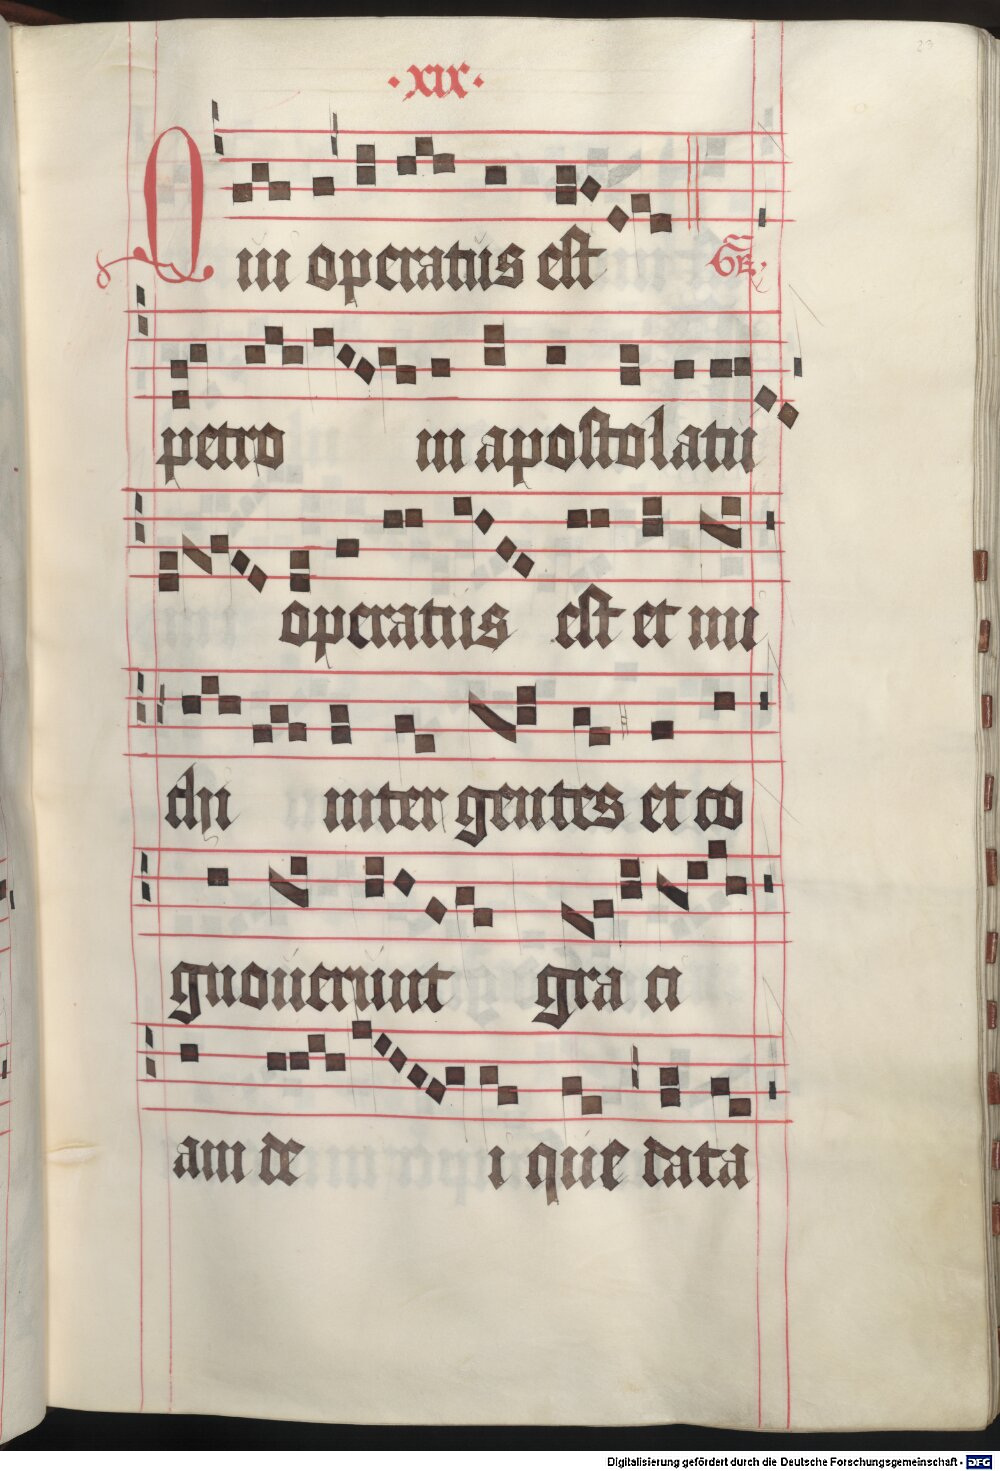 ·xix·
Qui operatus est GR.
petro in apostolatu
operatus est et mi
chi inter gentes et co
gnouerunt gra ci
am de i que data
23
Digitalisierung gefördert durch die Deutsche Forschungsgemeinschaft - DFG